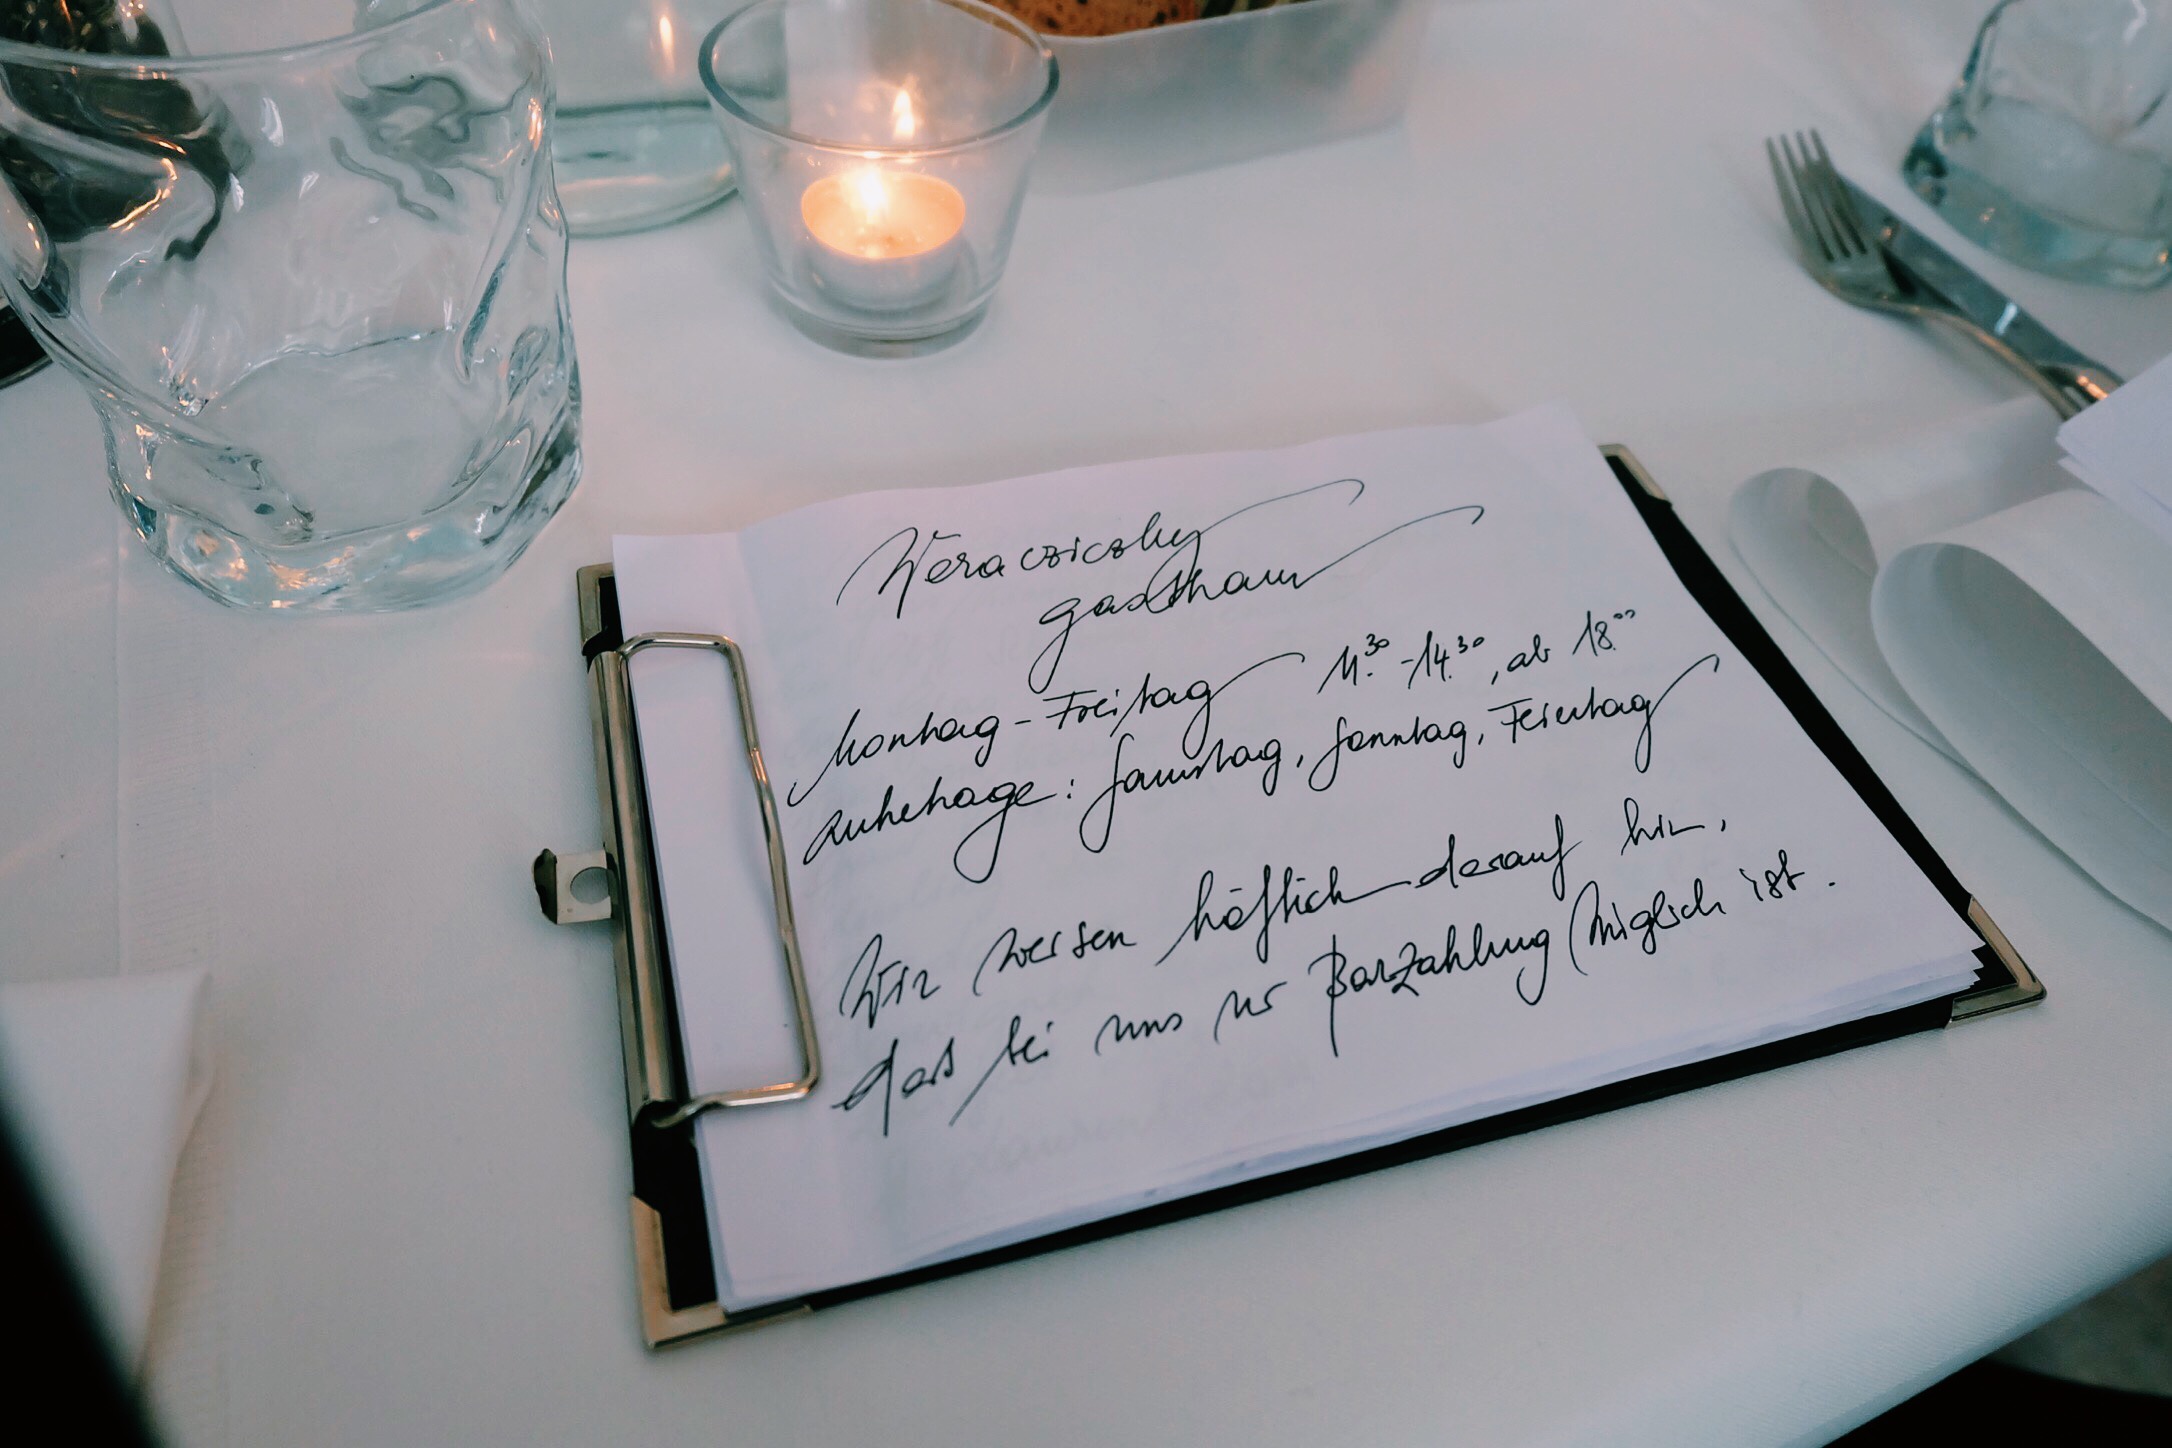 Weracziczky
gasthaus
Montag - Freitag 11.30 - 14.30, ab 18.00
Ruhetage: Samstag, Sonntag, Feiertag
Wir weisen höflich darauf hin,
daß bei uns nur Barzahlung möglich ist.